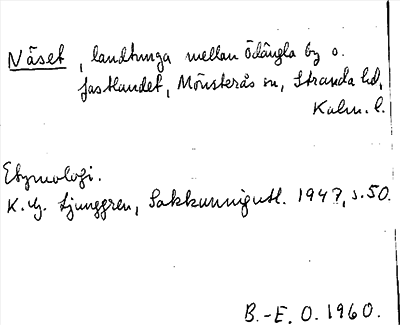 Näset, landtunga mellan Ödängla by o.
fastlandet, Mönsterås sn, Stranda hd,
Kalm. l.
Etymologi.
K. G. Ljunggren, Sakkunnigutl. 1947, s. 50.
B.-E. O. 1960.